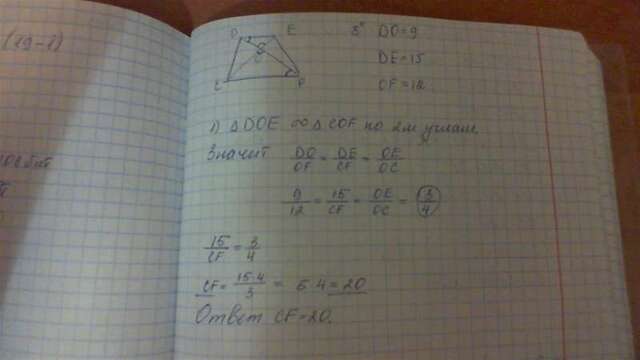 (29-1)
D E
O
C F
8° DO=9
DE=15
OF=12
1) △DOE ∞ △COF по 2м углам.
Значит DO/OF = DE/CF = OE/OC
9/12 = 15/CF = OE/OC = 3/4
15/CF = 3/4
CF = 15·4/3 = 5·4=20
Ответ CF=20.